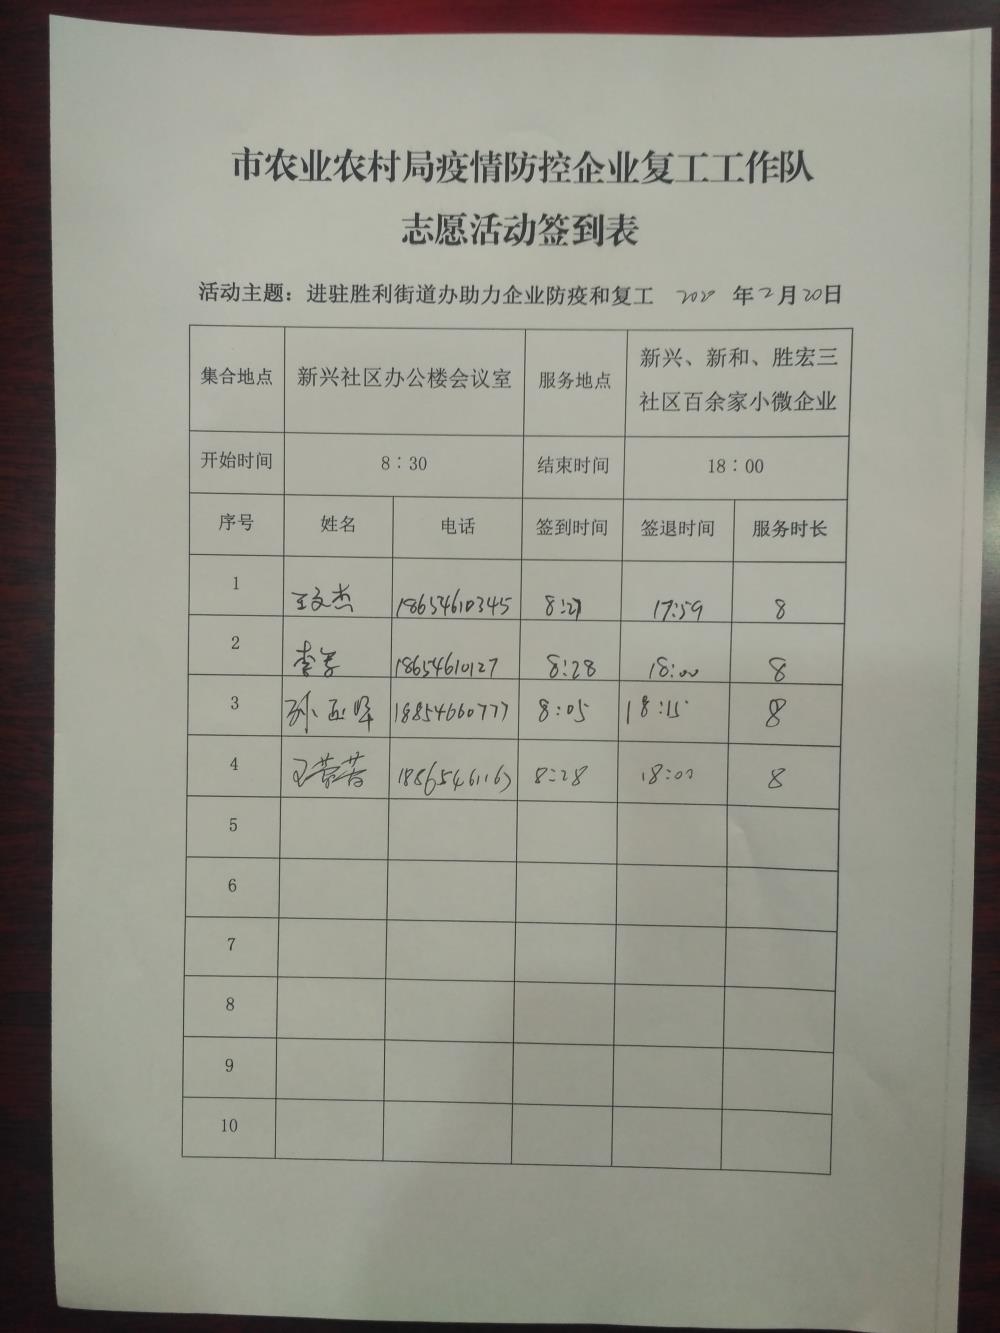 市农业农村局疫情防控企业复工工作队
志愿活动签到表
活动主题：进驻胜利街道办助力企业防疫和复工 2020 年2月20日
集合地点 新兴社区办公楼会议室 服务地点 新兴、新和、胜宏三
社区百余家小微企业
开始时间 8：30 结束时间 18：00
序号 姓名 电话 签到时间 签退时间 服务时长
1 王文杰 18654610345 8:27 17:59 8
2 李 18654610127 8:28 18:00 8
3 孙 18854660777 8:05 18:15 8
4 王 18865461163 8:28 18:00 8
5
6
7
8
9
10